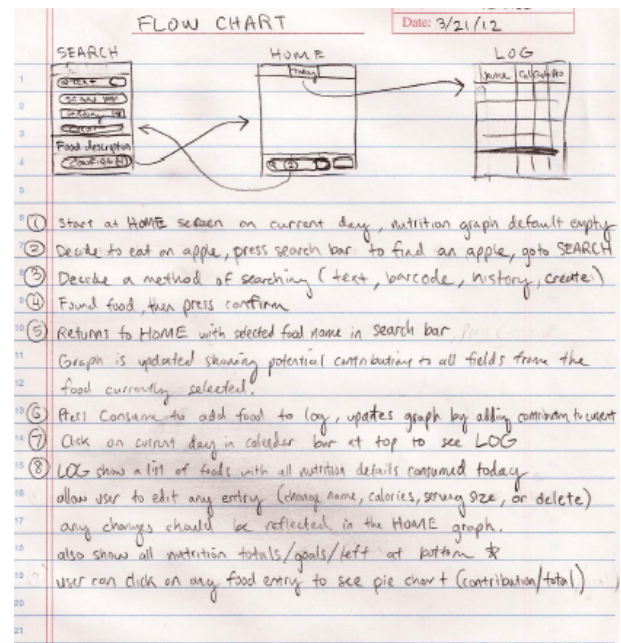 FLOW CHART
Date: 3/21/12
SEARCH HOME LOG
Today
Name Cal Carb Pro
Food description
① Start at HOME screen on current day, nutrition graph default empty
② Decide to eat an apple, press search bar to find an apple, goto SEARCH
③ Decide a method of searching (text, barcode, history, create)
④ Found food, then press confirm
⑤ Returns to HOME with selected food name in search bar,
Graph is updated showing potential contributions to all fields from the
food currently selected.
⑥ Press Consume to add food to log, updates graph by adding contribution to current
⑦ Click on current day in calendar bar at top to see LOG
⑧ LOG show a list of foods with all nutrition details consumed today
allow user to edit any entry (change name, calories, serving size, or delete)
any changes should be reflected in the HOME graph.
also show all nutrition totals/goals/left at bottom
user can click on any food entry to see pie chart (contribution/total)
1
2
3
4
5
6
7
8
9
10
11
12
13
14
15
16
17
18
19
20
21